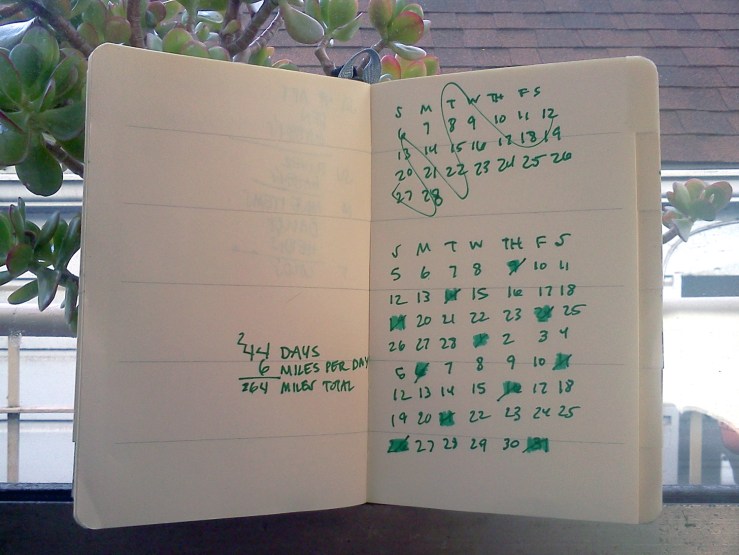 2
44 DAYS
6 MILES PER DAY
264 MILES TOTAL
S M T W TH F S
6 7 8 9 10 11 12
13 14 15 16 17 18 19
20 21 22 23 24 25 26
27 28
S M T W TH F S
5 6 7 8 9 10 11
12 13 15 16 17 18
20 21 22 23 25
26 27 28 2 3 4
5 6 7 8 9 10
12 13 14 15 16 17 18
19 20 22 23 24 25
27 28 29 30 31